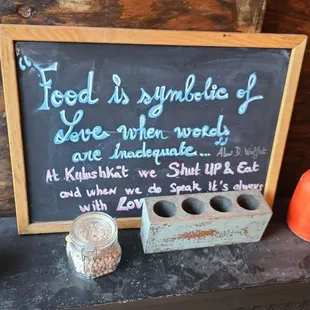 "Food is symbolic of
Love when words
are inadequate..." Alan D. Wolfelt
At Kulushkât we Shut UP & Eat
and when we do Speak It's always
with Love